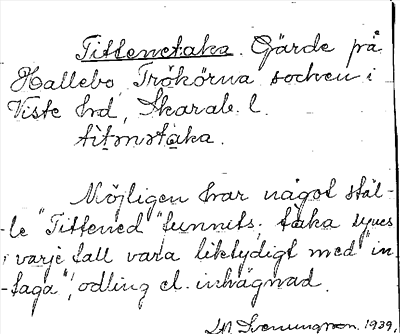 Tittenetaka. Gärde på
Hallebo, Trökörna socken i
Viste hrd, Skarab. l.
titmstaka.
Möjligen har något stäl-
-le "Tittened" funnits. täka synes
i varje fall vara liktydigt med "in-
-taga", odling el. inhägnad.
Svenungsson. 1939.